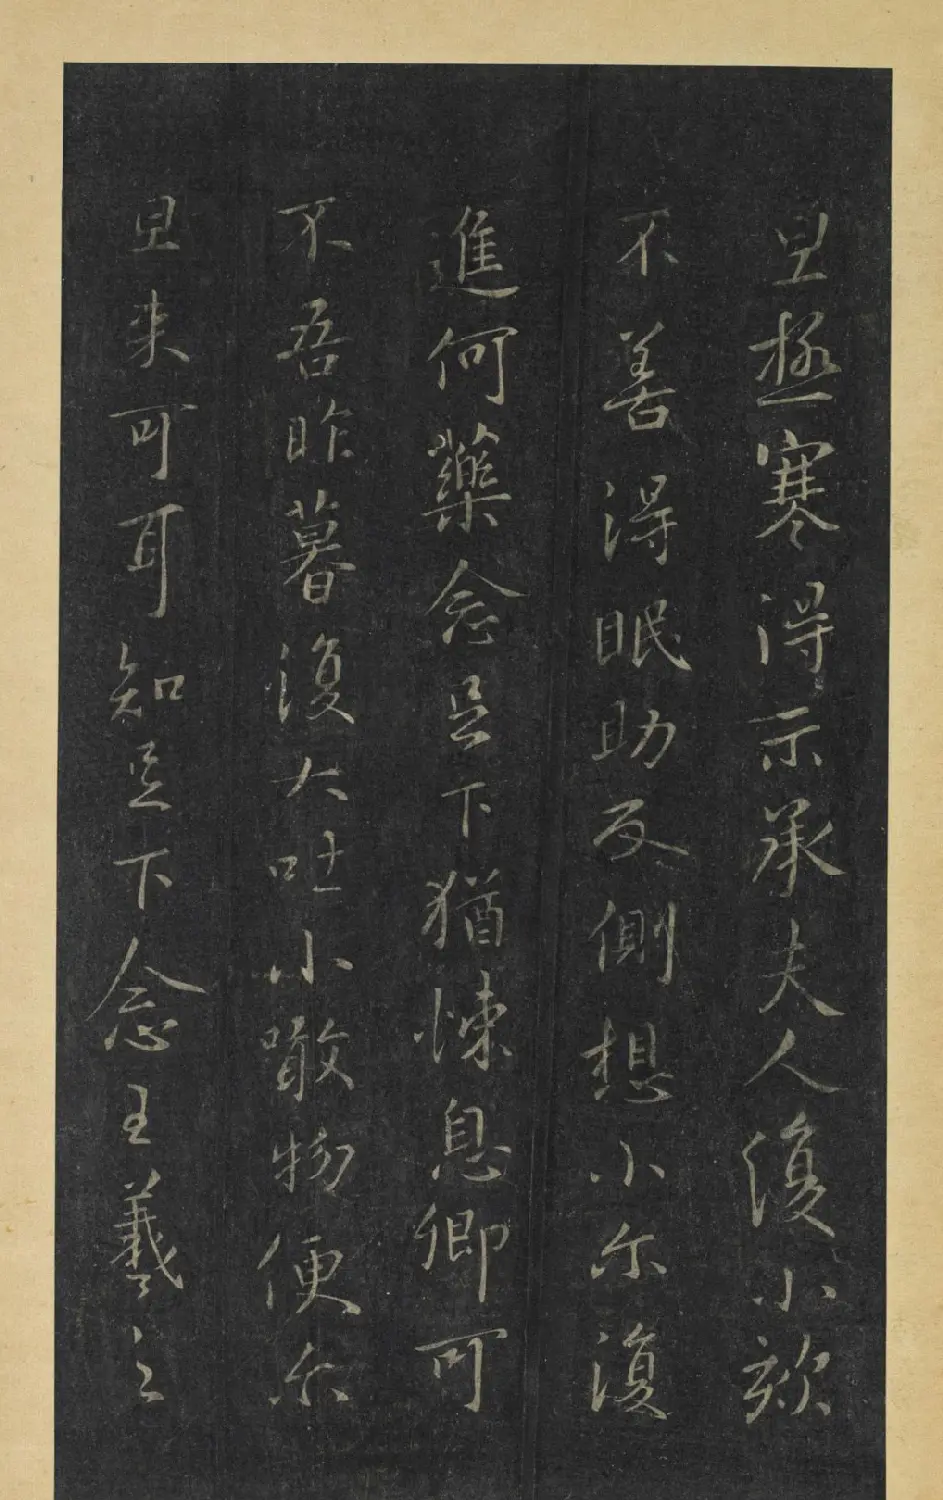 旦極寒得示承夫人復小欬
不善得眠助反側想小尔復
進何藥念足下猶悚息卿可
不吾昨暮復大吐小噉物便尔
旦来可耳知足下念王羲之